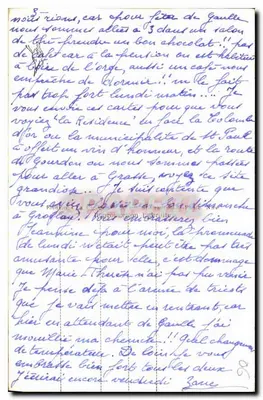 nous rions, car pour fêter de Gaulle
nous sommes allées à 3 dans un salon
de thé prendre un bon chocolat!! pas
de café car à la pension on est habitué
à boire de l'orge, aussi un café nous
empêche de dormir!! il ne fait
pas trop fort lundi matin... Je
vous envoie ces cartes pour que vous
voyiez "la Résidence" en face la Colombe
d'or ou la municipalité de St Paul
a offert un vin d'honneur, et la route
de Gourdon ou nous sommes passés
pour aller à Grasse, voyez le site
grandiose... Je suis contente que
vous dimanche
à Groslay! Vous embrasserez bien
Jeanine pour moi, la promenade
de lundi n'était peut être pas très
amusante pour elle, c'est dommage
que Marie Thérèse n'ai pas pu venir
Je pense déjà à l'arme de tricots
que je vais mettre en rentrant, car
hier en attendant de Gaulle j'ai
mouillé ma chemise!! Quel changement
de température. De loin je vous
embrasse bien fort tous les deux
J'écrirai encore vendredi